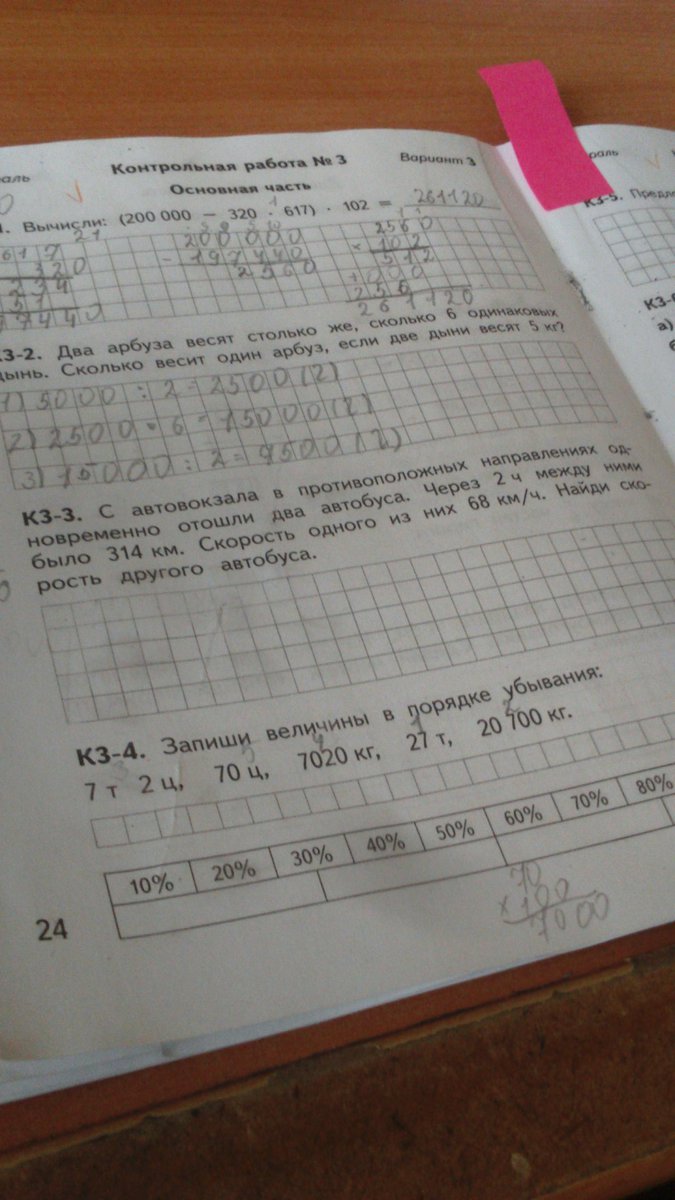 Контрольная работа № 3
Вариант 3
Основная часть
Вычисли: (200 000 − 320 · 617) · 102 = 261120
21
617
320
234
7440
200 000
- 197440
2560
2560
× 102
512
000
256
261120
КЗ-2. Два арбуза весят столько же, сколько 6 одинаковых
дынь. Сколько весит один арбуз, если две дыни весят 5 кг?
1) 5000 : 2 = 2500 (г)
2) 2500 · 6 = 15000 (г)
3) 15000 : 2 = 7500 (г)
КЗ-3. С автовокзала в противоположных направлениях од-
новременно отошли два автобуса. Через 2 ч между ними
было 314 км. Скорость одного из них 68 км/ч. Найди ско-
рость другого автобуса.
КЗ-4. Запиши величины в порядке убывания:
3 5 4 1 2
7 т 2 ц, 70 ц, 7020 кг, 27 т, 20 700 кг.
10% 20% 30% 40% 50% 60% 70% 80%
70
× 100
7000
24
КЗ-5.
а)